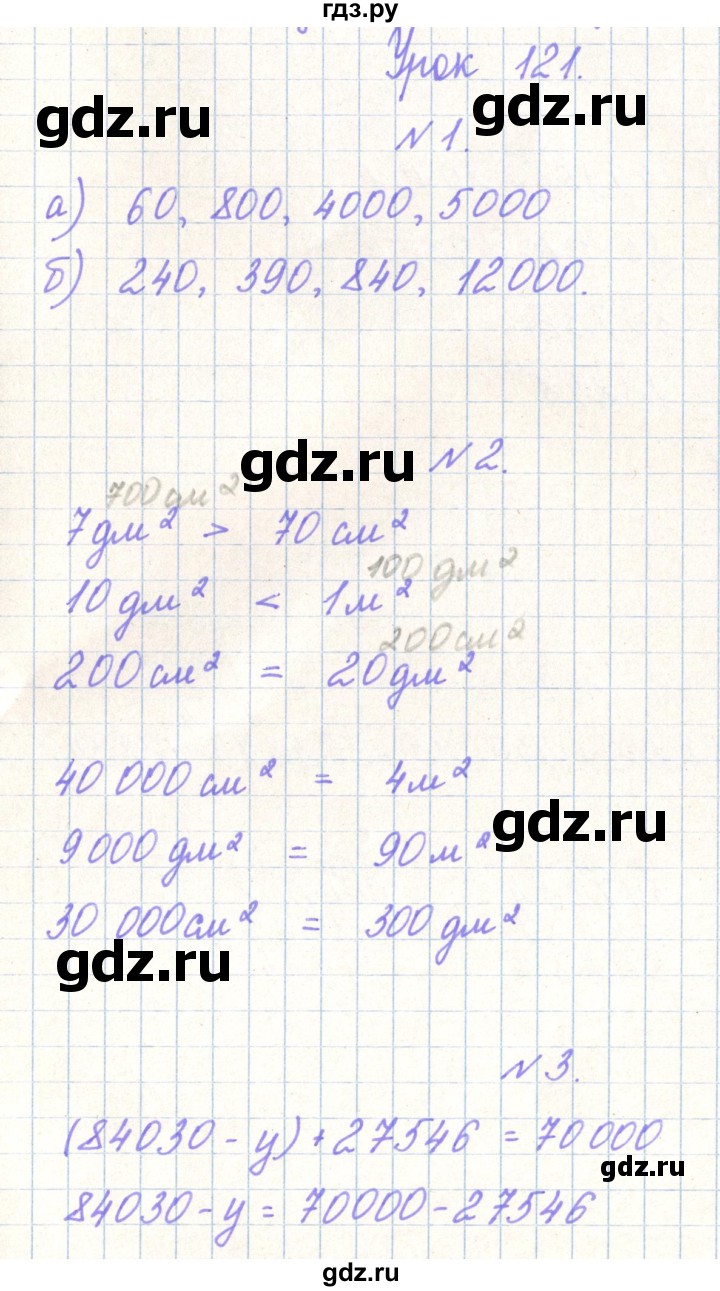 гдз.ру
Урок 121.
gdz.ru gdz.ru
N 1.
а) 60, 800, 4000, 5000
б) 240, 390, 840, 12000.
gdz.ru N 2.
700 дм²
7 дм² > 70 см²
100 дм²
10 дм² < 1 м²
200 см²
200 см² = 20 дм²
40 000 см² = 4 м²
gdz.ru
9000 дм² = 90 м²
30 000 см² = 300 дм²
gdz.ru
N 3.
(84030 - у) + 27546 = 70 000
gdz.ru
84030 - у = 70000 - 27546
gdz.ru